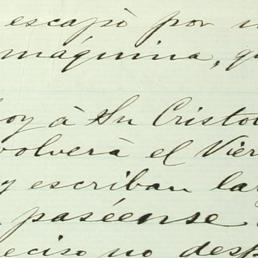 escapó por
máquina,
oy á Su Cristo
volverá el Vier
y escriban lar
paséense
eciso no desp